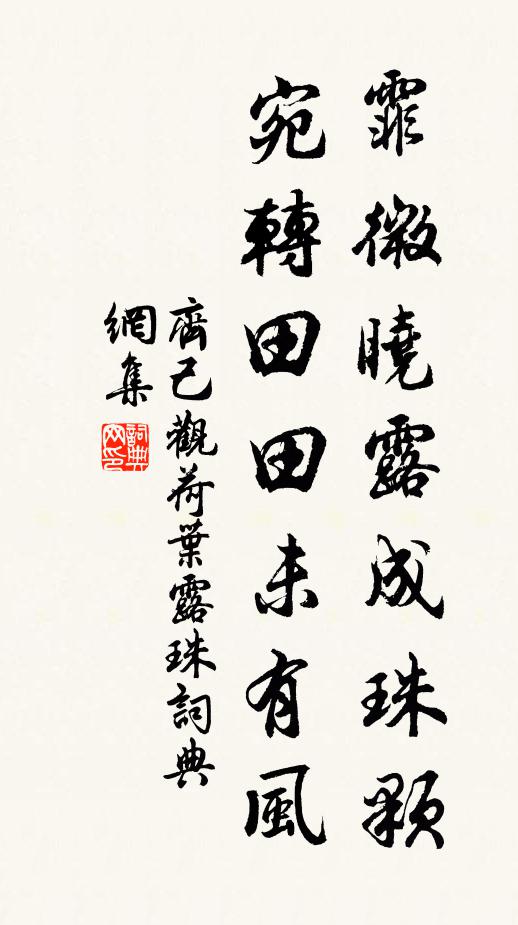 霏微曉露成珠顆
宛轉田田未有風
齊己觀荷葉露珠詞典
網集
詞典
网印